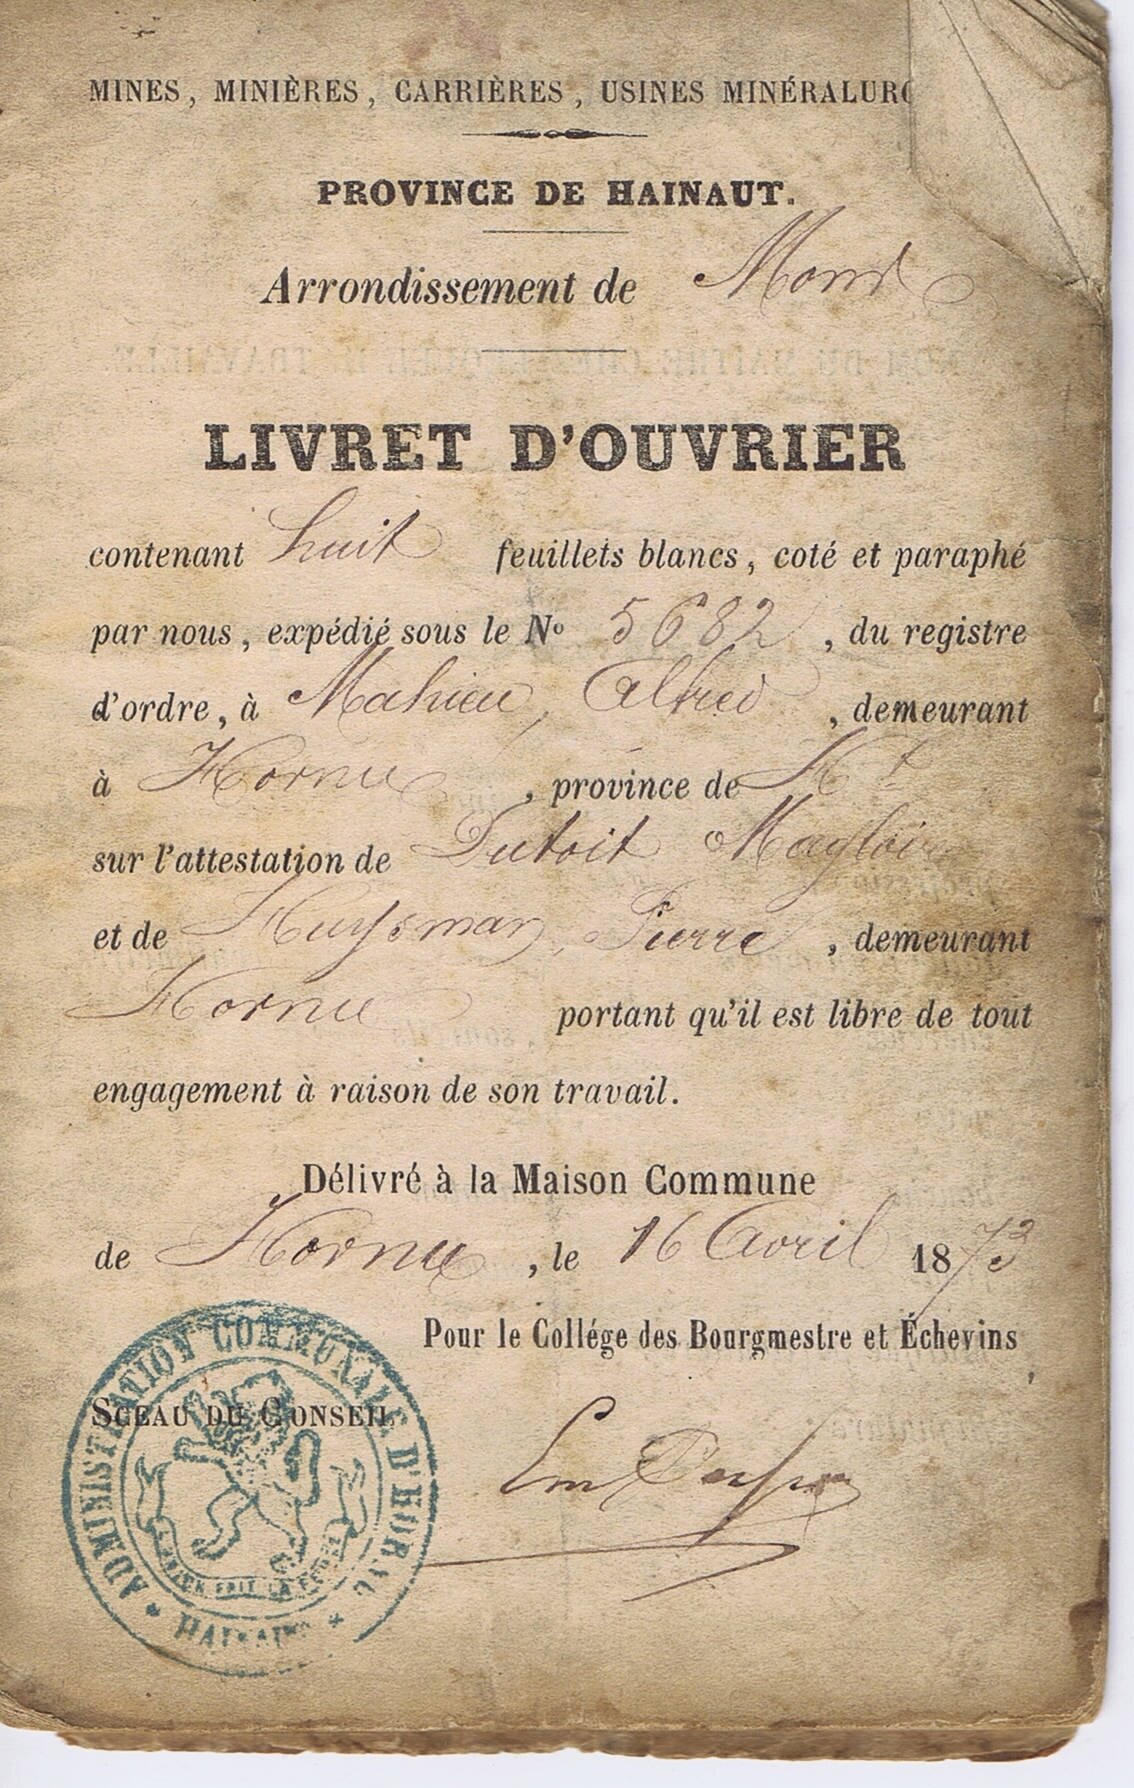 MINES, MINIÈRES, CARRIÈRES, USINES MINÉRALURG
PROVINCE DE HAINAUT.
Arrondissement de Mons
LIVRET D'OUVRIER
contenant huit feuillets blancs, coté et paraphé
par nous, expédié sous le No 5682, du registre
d'ordre, à Mahieu, Alfred, demeurant
à Hornu, province de Ht
sur l'attestation de Dutoit Magloire
et de Huysman, Pierre, demeurant
Hornu portant qu'il est libre de tout
engagement à raison de son travail.
Délivré à la Maison Commune
de Hornu, le 16 Avril 1873
Pour le Collége des Bourgmestre et Échevins
SCEAU DU CONSEIL
ADMINISTRATION COMMUNALE D'HORNU
L'UNION FAIT LA FORCE
* HAINAUT *